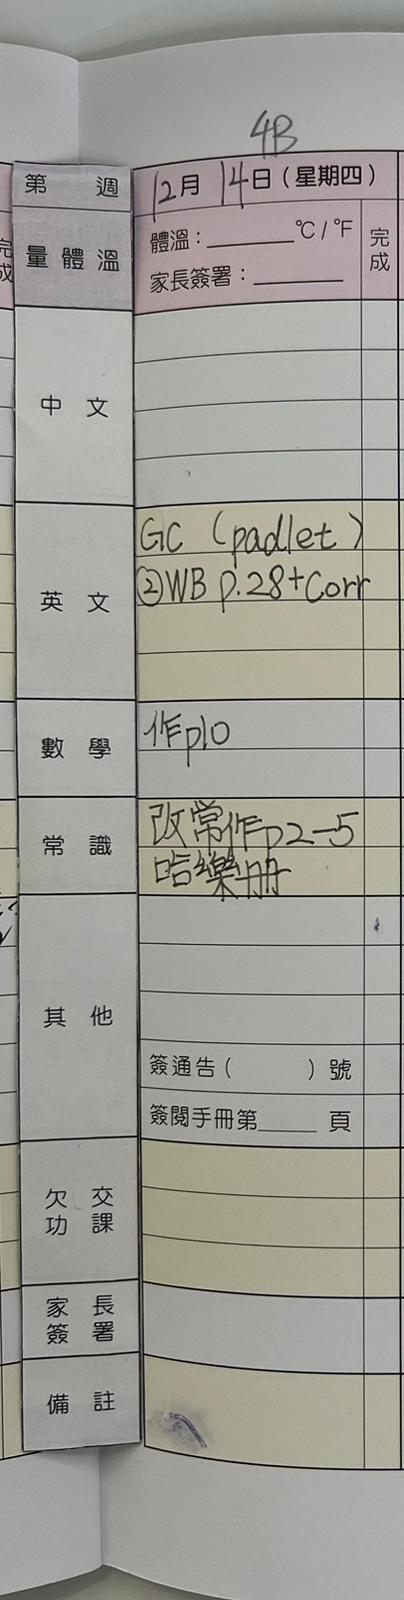 4B
第 週
12月 14日(星期四)
量體溫
體溫：______℃/℉
家長簽署：______
完成
中文
英文
GC (padlet)
②WB p.28+Corr
數學
作p10
常識
改常作p2-5
哈樂冊
其他
簽通告( )號
簽閱手冊第____頁
欠交功課
家長簽署
備註